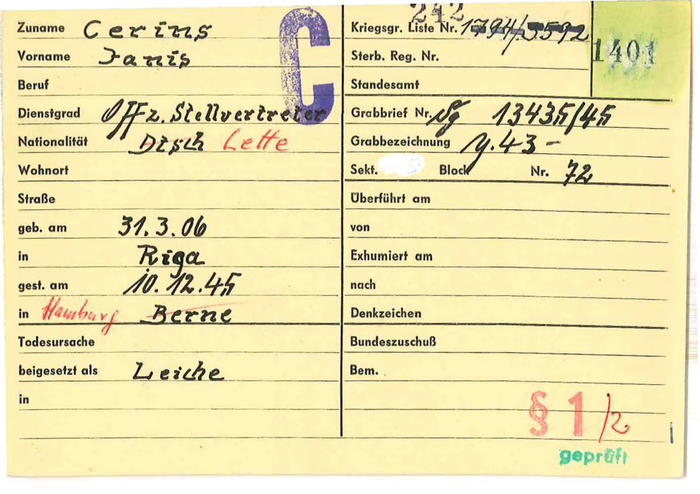 C
Zuname Cerins
Vorname Janis
Beruf
Dienstgrad Offz. Stellvertreter
Nationalität Dtsch Lette
Wohnort
Straße
geb. am 31.3.06
in Riga
gest. am 10.12.45
in Hamburg Berne
Todesursache
beigesetzt als Leiche
in
242
Kriegsgr. Liste Nr. 1794/3592
1401
Sterb. Reg. Nr.
Standesamt
Grabbrief Nr. Sg 13435/45
Grabbezeichnung y.43-
Sekt. Block Nr. 72
Überführt am
von
Exhumiert am
nach
Denkzeichen
Bundeszuschuß
Bem.
§ 1/2
geprüft